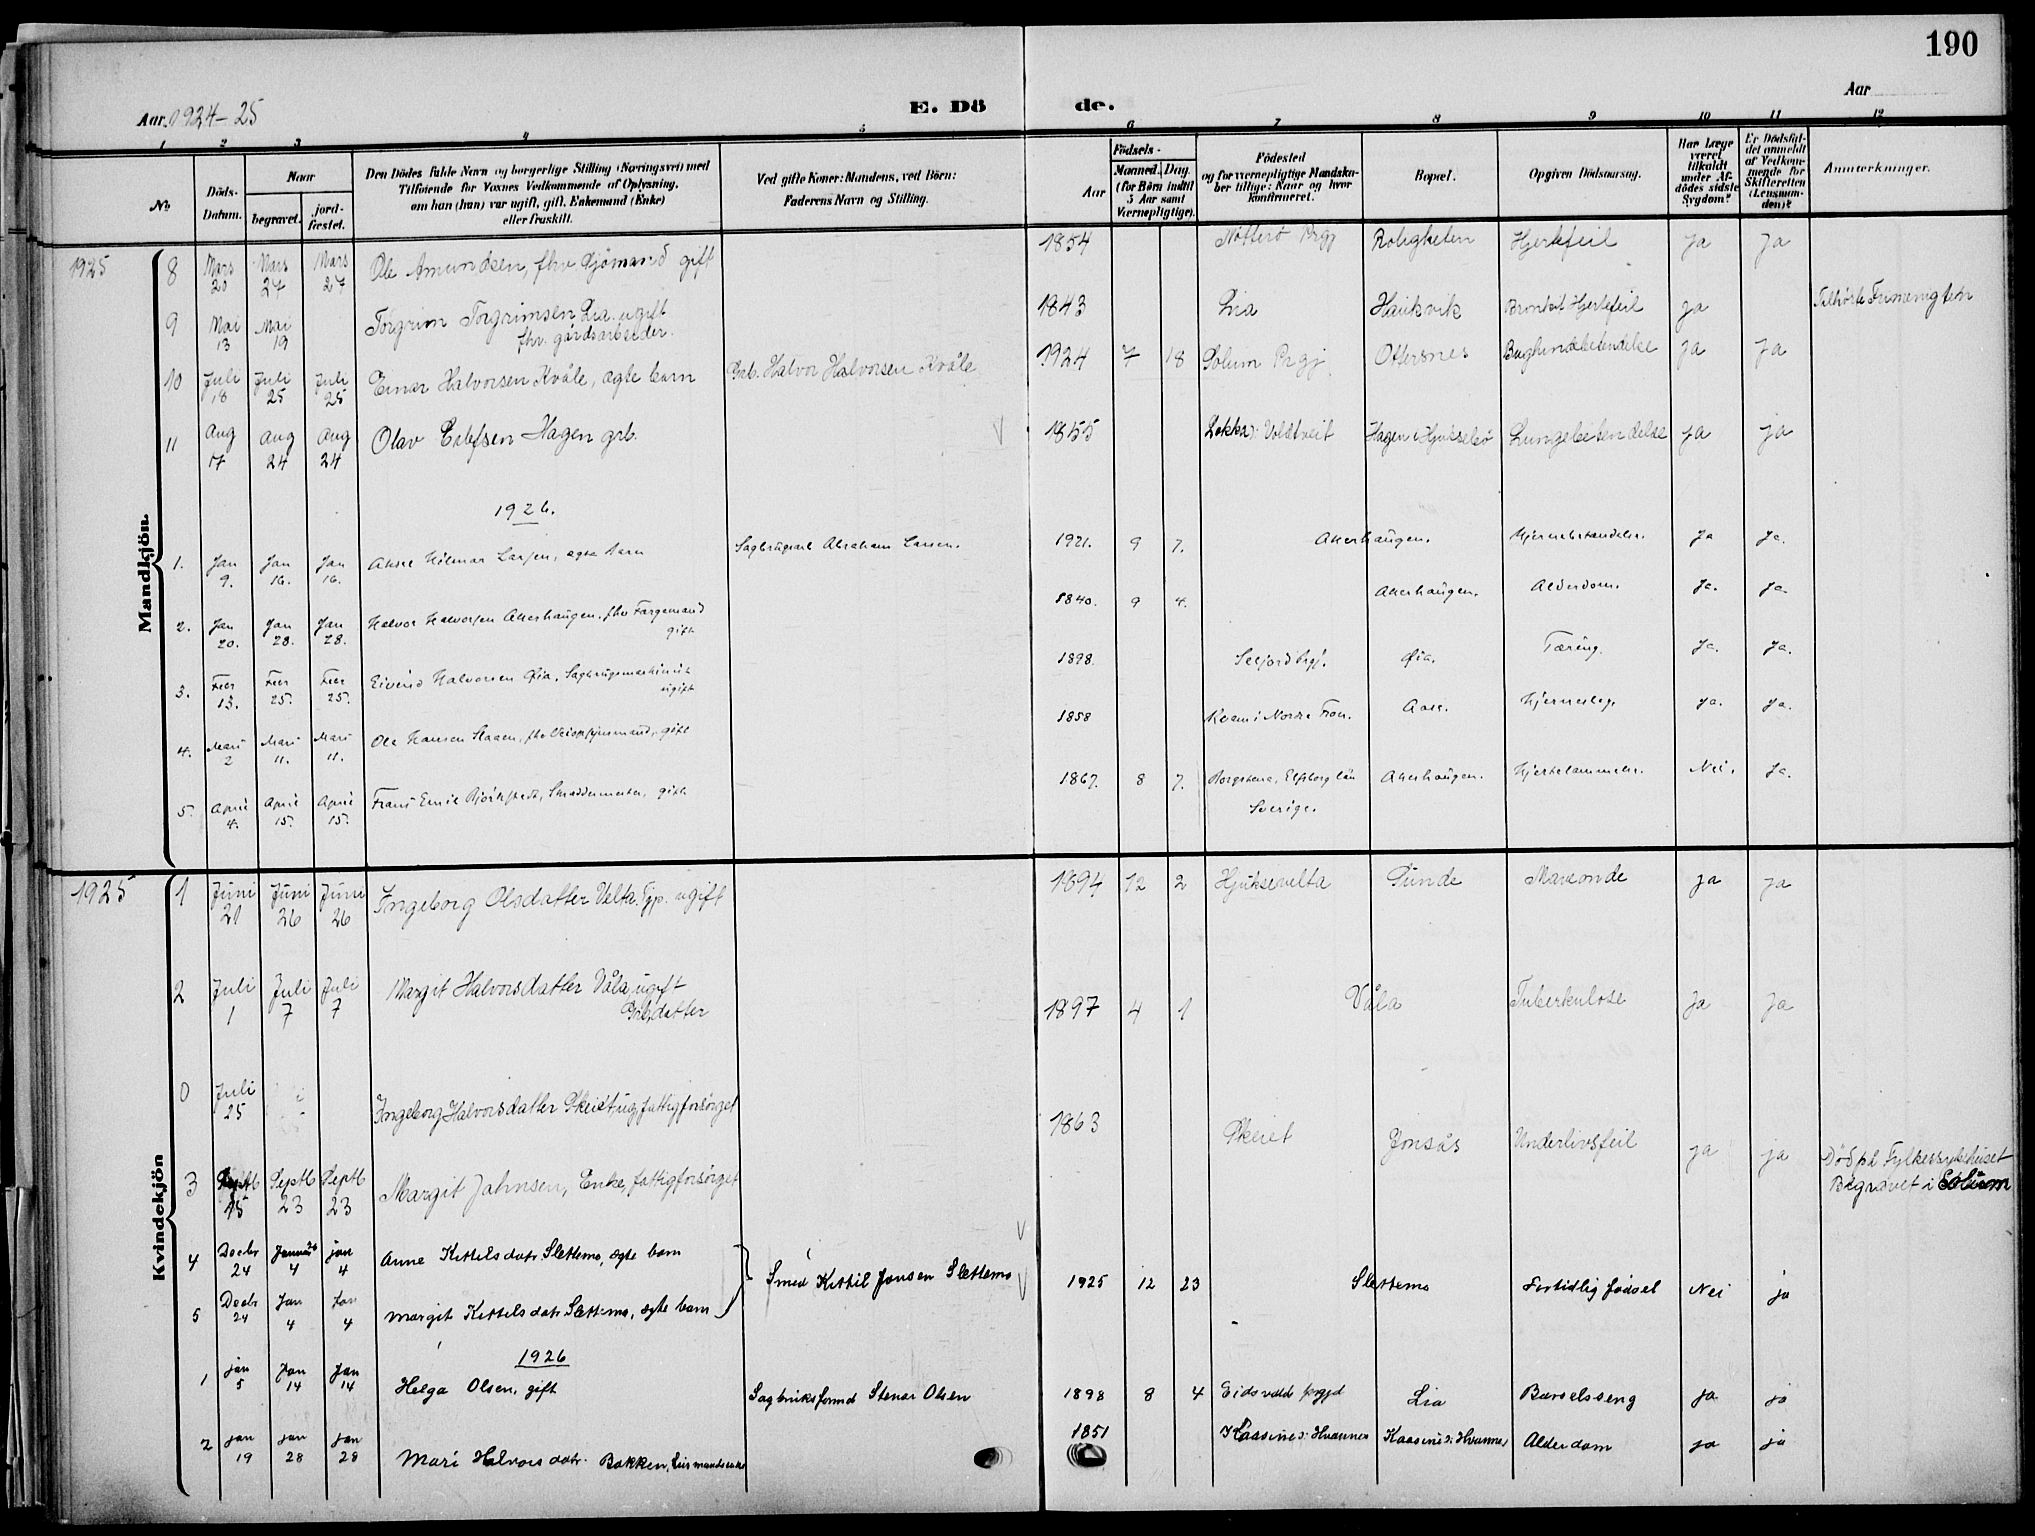 190
Aar 1924-25
E. Dö de.
Aar
1 2 3 4 5 6 7 8 9 10 11 12
№
Döds-Datum.
Naar
begravet.
jord-fæstet.
Den Dödes fulde Navn og borgerlige Stilling (Næringsvei) med
Tilföiende for Voxnes Vedkommende af Oplysning,
om han (hun) var ugift, gift, Enkemand (Enke)
eller fraskilt.
Ved gifte Koner: Mandens, ved Börn:
Faderens Navn og Stilling.
Födsels-
Aar
Maaned. Dag.
(for Börn indtil
5 Aar samt
Værnepligtige).
Födested
og for værnepligtige Mandska-
ber tillige: Naar og hvor
konfirmeret.
Bopæl.
Opgiven Dödsaarsag.
Har Læge
været
tilkaldt
under Af-
dödes sidste
Sygdom?
Er Dödsfal-
det anmeldt
af Vedkom-
mende for
Skifteretten
(Lensman-
den)?
Anmærkninger.
Mandkjön.
1925 8 Mars 20 Mars 27 Mars 27 Ole Amundsen, fhv Sjömand gift 1854 Nötterö Prgj Roligheten Hjertefeil ja ja
9 Mai 13 Mai 19 Torgrim Torgrimsen Lia ugift
fhv. gårdsarbeider. 1843 Lia Haukvik Bronkit Hjertefeil ja Tilhörte Frimenigten
10 Juli 18 Juli 25 Juli 25 Einar Halvorsen Kvåle, ægte barn Grb. Halvor Halvorsen Kvåle 1924 7 18 Solum Prgj. Ottersnes Bughindebetendelse ja ja
11 Aug 17 Aug 24 Aug 24 Olav Hagen grb. 1855 Voldtveit Hagen i Lungebetendelse ja ja
1926.
1. Jan 9. Jan 16. Jan 16. Aksel Hilmar Larsen, ægte barn Sagbrugsarb Abraham Larsen. 1921. 9 7. Akerhaugen. Hjernebetændelse. Ja Ja.
2. Jan 20. Jan 28. Jan 28. Halvor Halvorsen Akerhaugen, fhv Færgemand
gift 1840. 9 4. Akerhaugen. Alderdom. Ja. Ja.
3. Febr 13. Febr 25. Febr 25. Eivind Halvorsen Øia, Sagbrugsmaskinist
ugift 1898. Seljord Prgj. Øia. Tæring. Ja. Ja.
4. Mars 2 Mars 11. Mars 11. Ole Hansen fhv Veiopsynsmand, gift 1858 Kvam i Nordre Fron. Hjerneslag. Ja. Ja.
5. April 4. April 15. April 15. Frans Emil Björkstedt, Skreddermester, gift 1867. 8 7. Borgstena, Elfsborg län
Sverige. Akerhaugen. Hjertelammelse. Nei. Ja.
Kvindekjön
1925 1 Juni 21 Juni 26 Juni 26 Ingeborg Olsdatter Velta Tjp. ugift 1894 12 2 Hjuksevelta Sunde Maveonde ja ja
2 Juli 1 Juli 7 Juli 7 Margit Halvorsdatter Våla ugift
Grb. datter 1897 4 1 Våla Tuberkulose Ja Ja
0 Juli 25 Ingeborg Halvorsdatter Skeiet ug. fattigforsörget 1863 Skeiet Jonsås Underlivsfeil ja ja Död på Fylkessykehuset
Begravet i Solum
3 Septb 15 Septb 23 Septb 23 Margit Jahnsen, Enke, fattigforsörget
4 Decbr 24 Januar 26 4 jan 4 Anne Kittelsdatr Slettemo, ægte barn Smed Kittil Jonsen Slettemo 1925 12 23 Slettemo Fortidlig födsel Nei ja
5 Decbr 24 Jan 4 Jan 4 Margit Kittelsdatr Slettemo, ægte barn
1926
1 jan 5 Jan 14 Jan 14 Helga Olsen, gift Sagbruksformd Stenar Olsen 1898 8 4 Eidsvold prgjd Lia Barselsseng ja ja
2 jan 19 jan 28 jan 28 Mari Halvorsdatr Bakken, 1851 Alderdom ja ja